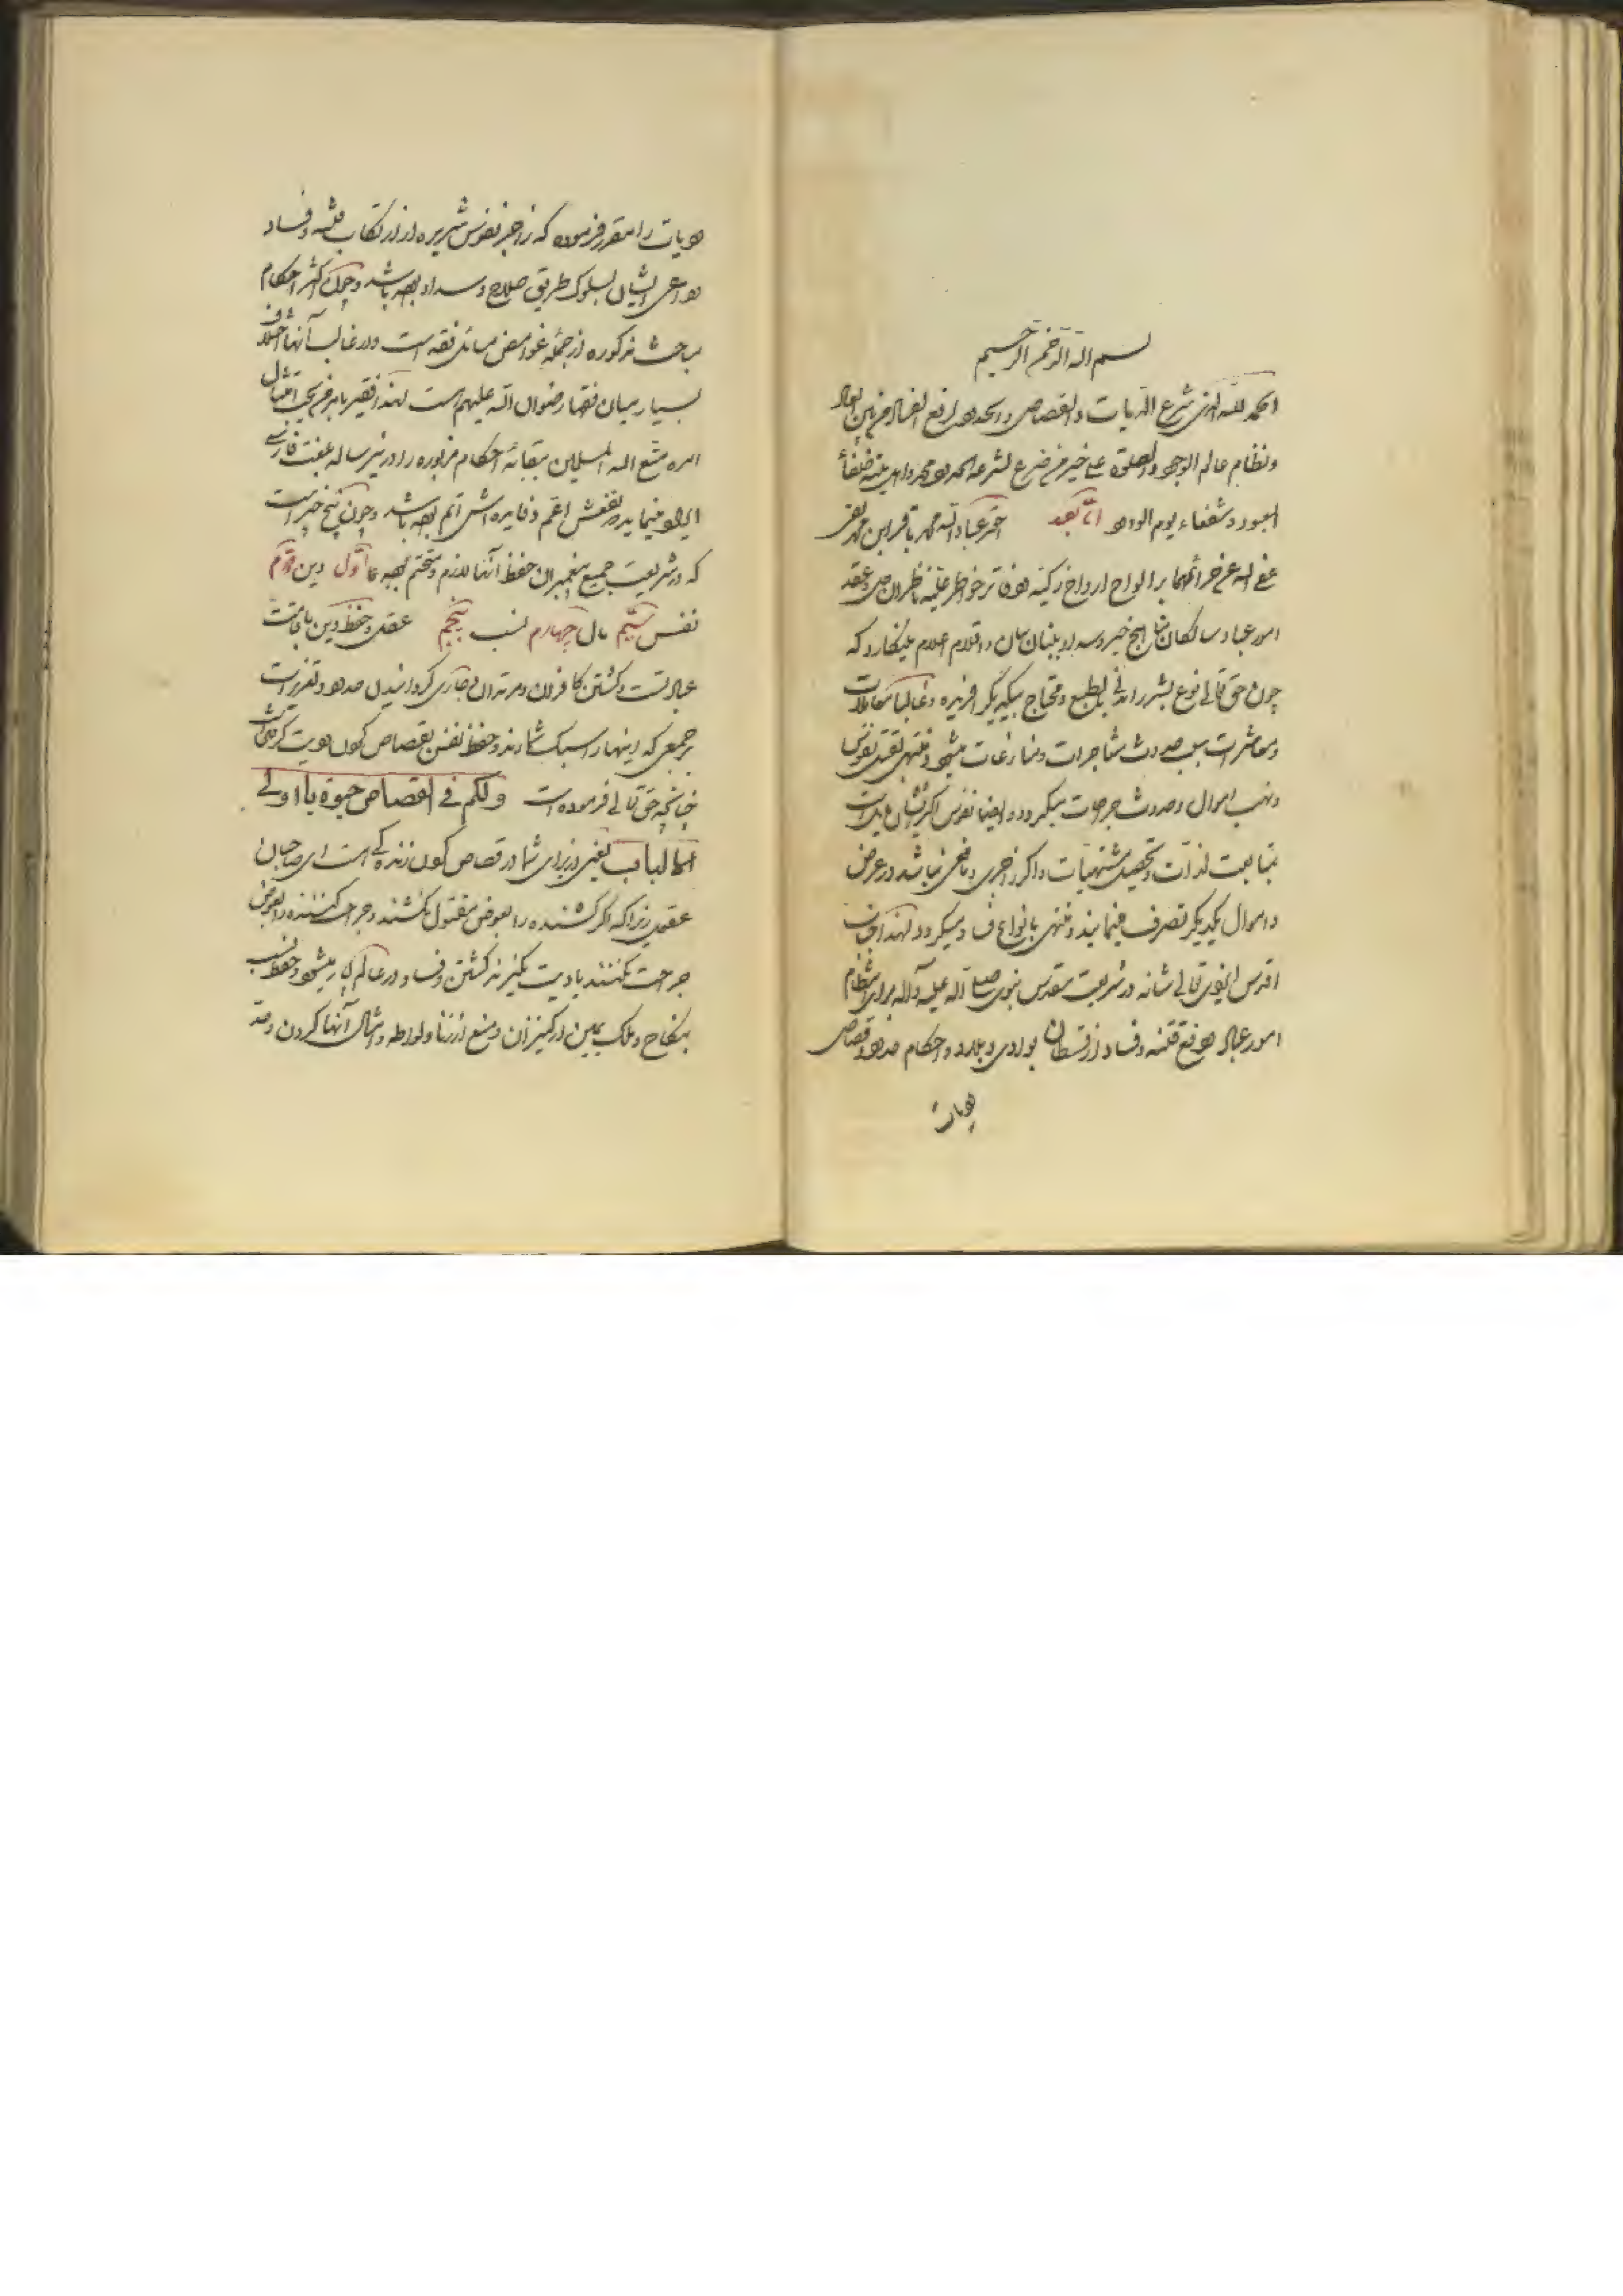 بسم الله الرحمن الرحیم
الحمد لله الذی شرع الدیات والقصاص والحدود لرفع الفساد من بین العباد
ونظام عالم الوجود والصلوة علی خیر من شرع لشرعه الحدود محمد واهل بیته خلفاء
المعبود وشفعاء یوم الورود اما بعد احقر عباد الله محمد باقر ابن محمد تقی
عفی الله عن جرائمهما بر الواح ارواح زکیه و دفاتر خواطر علیه ناظران حل و عقد
امور عباد و سالکان مناهج خیر و سداد ببنان بیان و اقلام اعلام مینکارد که
چون حق تعالی نوع بشر را مدنی بالطبع و محتاج بیکدیکر افریده و غالبا معاملات
و معاشرات سبب حدوث مشاجرات و منازعات میشود و منتهی بقتل نفوس
و نهب اموال و حدوث جراحات میکردد و ایضا نفوس اکثر ایشان مایلست
بمتابعت لذات و تحصیل مشتهیات و اکر زاجری و مانعی نباشد در عرض
و اموال یکدیکر تصرف مینمایند و منتهی بانواع فساد میکردد لهذا جناب
اقدس ایزدی تعالی شانه در شریعت مقدس نبوی صلی الله علیه وآله برای انتظام
امور عباد و رفع فتنه و فساد از بوادی و بلاد و احکام حدود و قصاص
و دیات
دیات را مقرر فرموده که زاجر نفوس شریره از ارتکاب فتنه و فساد
و داعی ایشان بسلوک طریق صلاح و سداد بوده باشد و چون اکثر احکام
مباحث مذکوره از جمله غوامض مسائل فقه است و در غالب آنها اختلاف
بسیار میان فقها رضوان الله علیهم است لهذا فقیر بامر من یجب امتثال
امره متع الله المسلمین ببقائه احکام مزبوره را در این رساله بلغت فارسی
ایراد مینماید که نفعش اعم و فایده اش اتم بوده باشد و چون پنج چیز است
که در شریعت جمیع پیغمبران حفظ آنها لازم و متحتم بوده اول دین دویم
نفس سیم مال چهارم نسب پنجم عقل و حفظ دین باقامت
عبادتست و کشتن کافران و مرتدان و جاری کردانیدن حدود و تعزیرات
بر جمعی که اینها را سبک شمارند و حفظ نفس بقصاص کردن و دیت کرفتن است
چنانچه حق تعالی فرموده است ولکم فی القصاص حیوة یا اولی
الالباب یعنی از برای شما در قصاص کردن زندکی است ای صاحبان
عقول زیرا که اکر کشنده را بعوض مقتول بکشند و جراحت کننده را بعوض
جراحت بکنند یا دیت بکیرند کشتن و فساد در عالم کم میشود و حفظ نسب
بنکاح و ملک یمین از کنیزان و منع از زنا و لواطه و امثال آنها کردن و حد